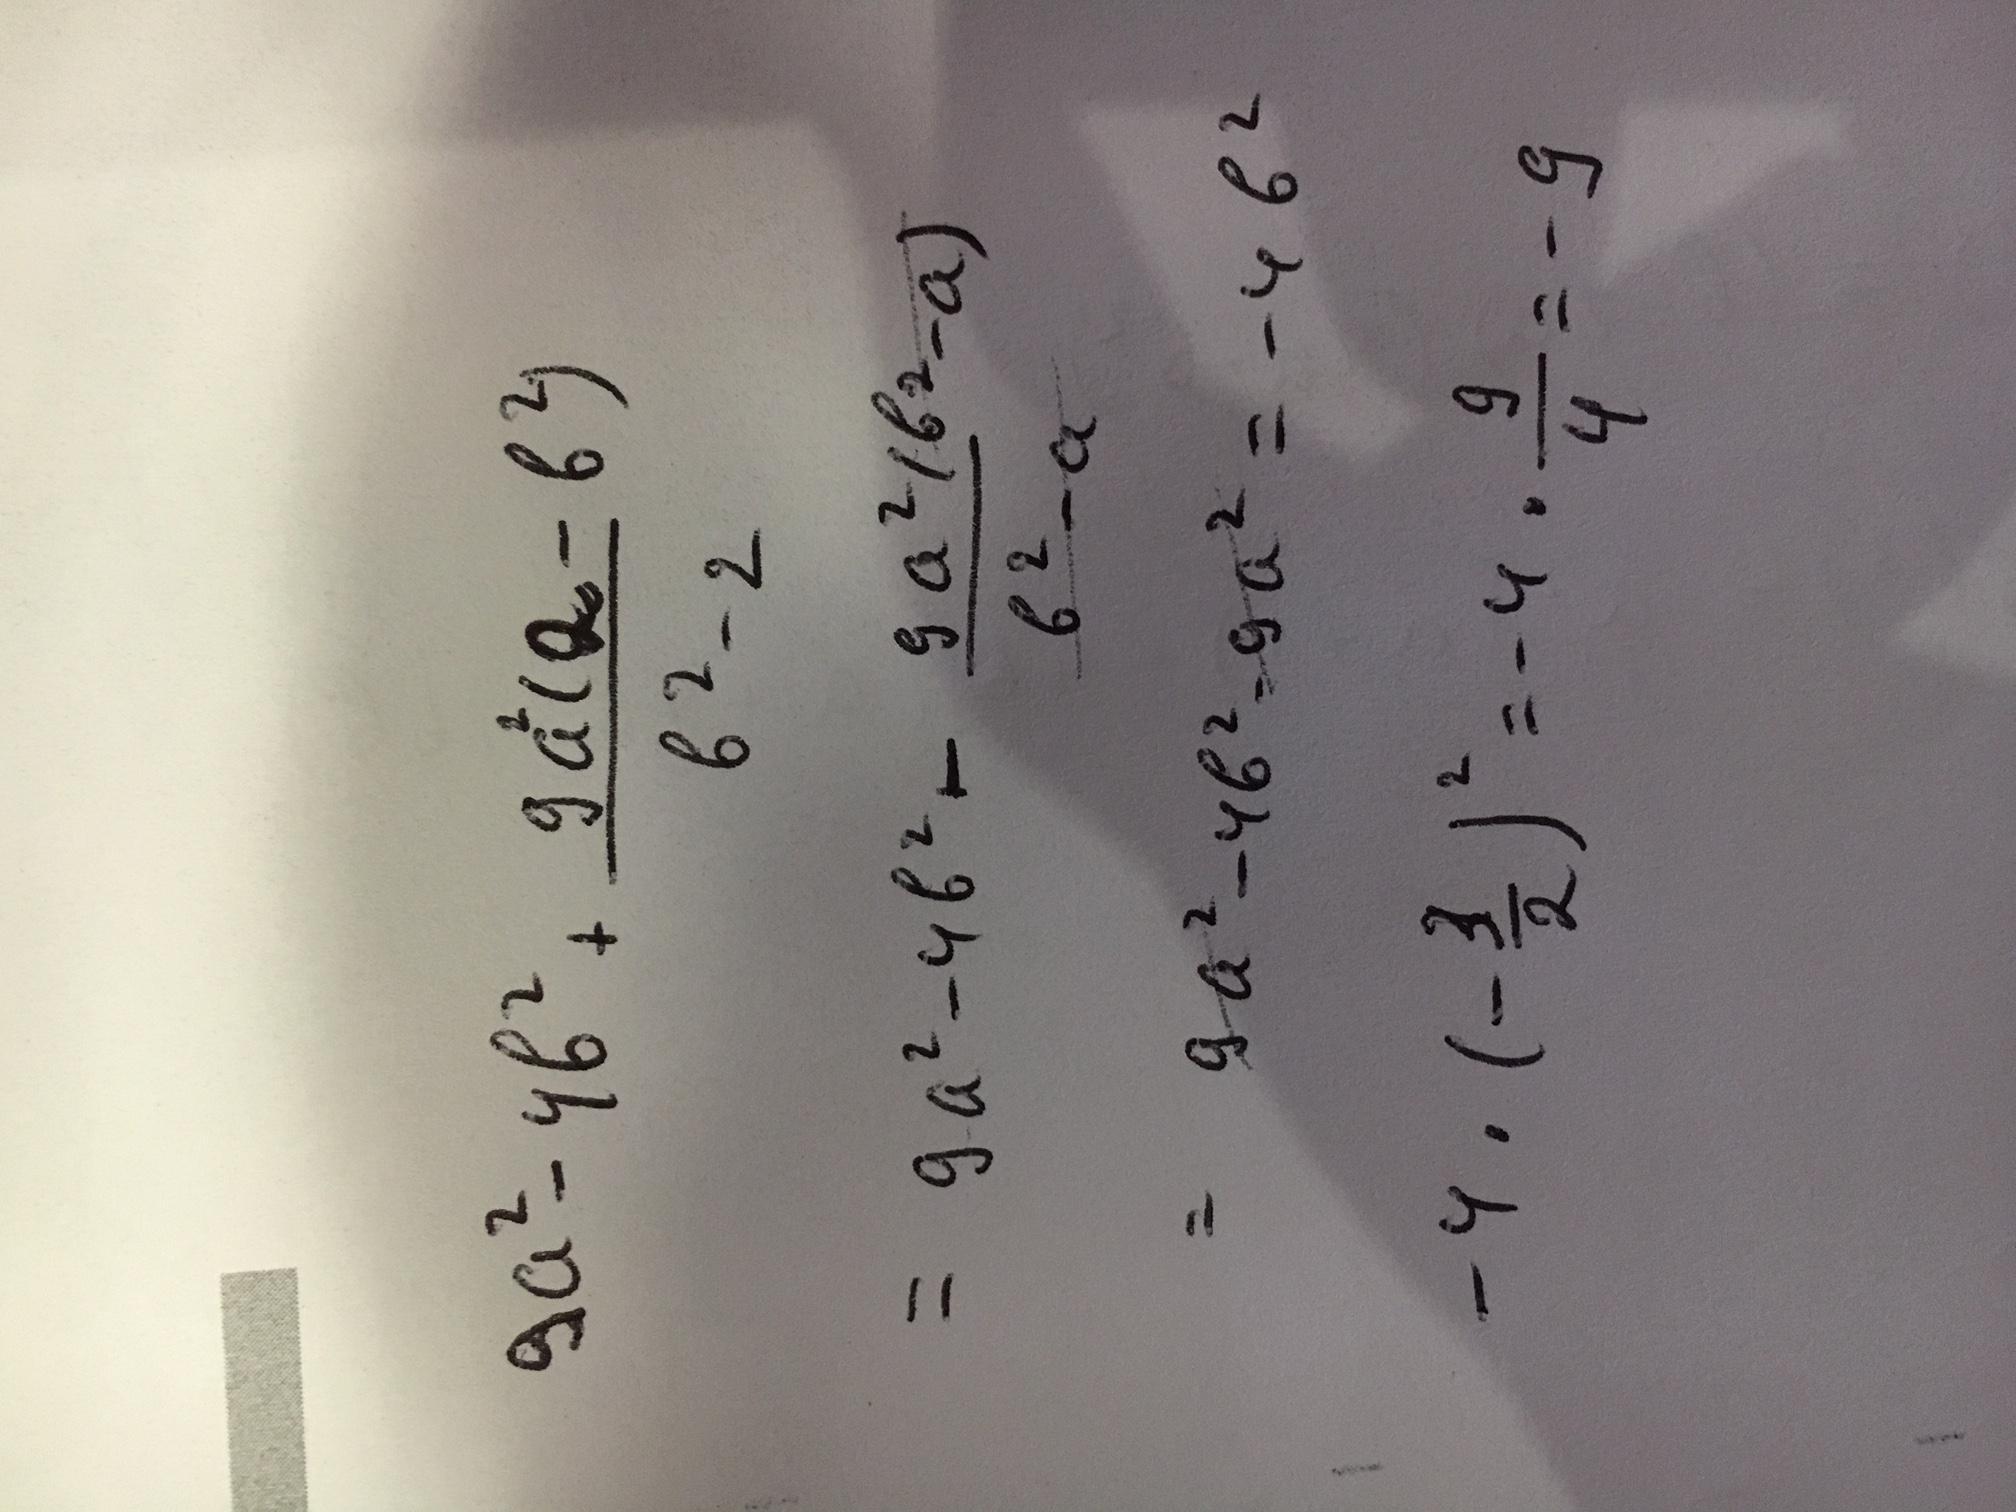 9a² - 4b² + 9a²(a - b²) / b² - 2
= 9a² - 4b² - 9a²(b² - a) / b² - a
= 9a² - 4b² - 9a² = - 4b²
- 4 · (- 3/2)² = - 4 · 9/4 = - 9